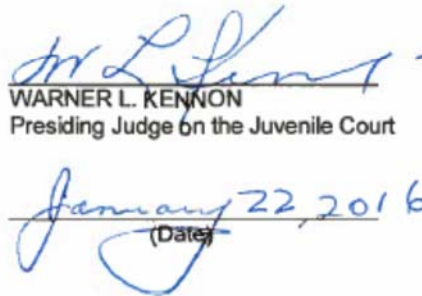 W L Kennon
WARNER L. KENNON
Presiding Judge on the Juvenile Court
January 22, 2016
(Date)